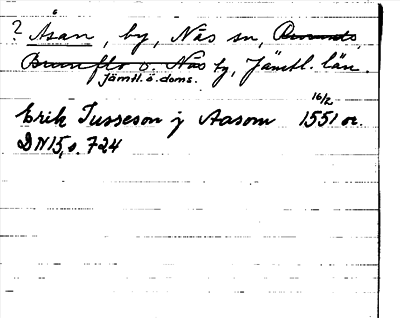 ? Åsan, by, Näs sn,
Brunflo o. Näs tg, Jämtl. län.
Jämtl. ö. doms.
Erik Tusseson j Aasom 16/2 1551 or.
DN 15, s. 724